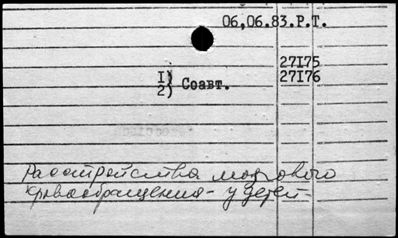 06,06.83.Р.Т.
27175
1) Соавт. 27176
2)
Расстройства мозгового
кровообращения - у детей